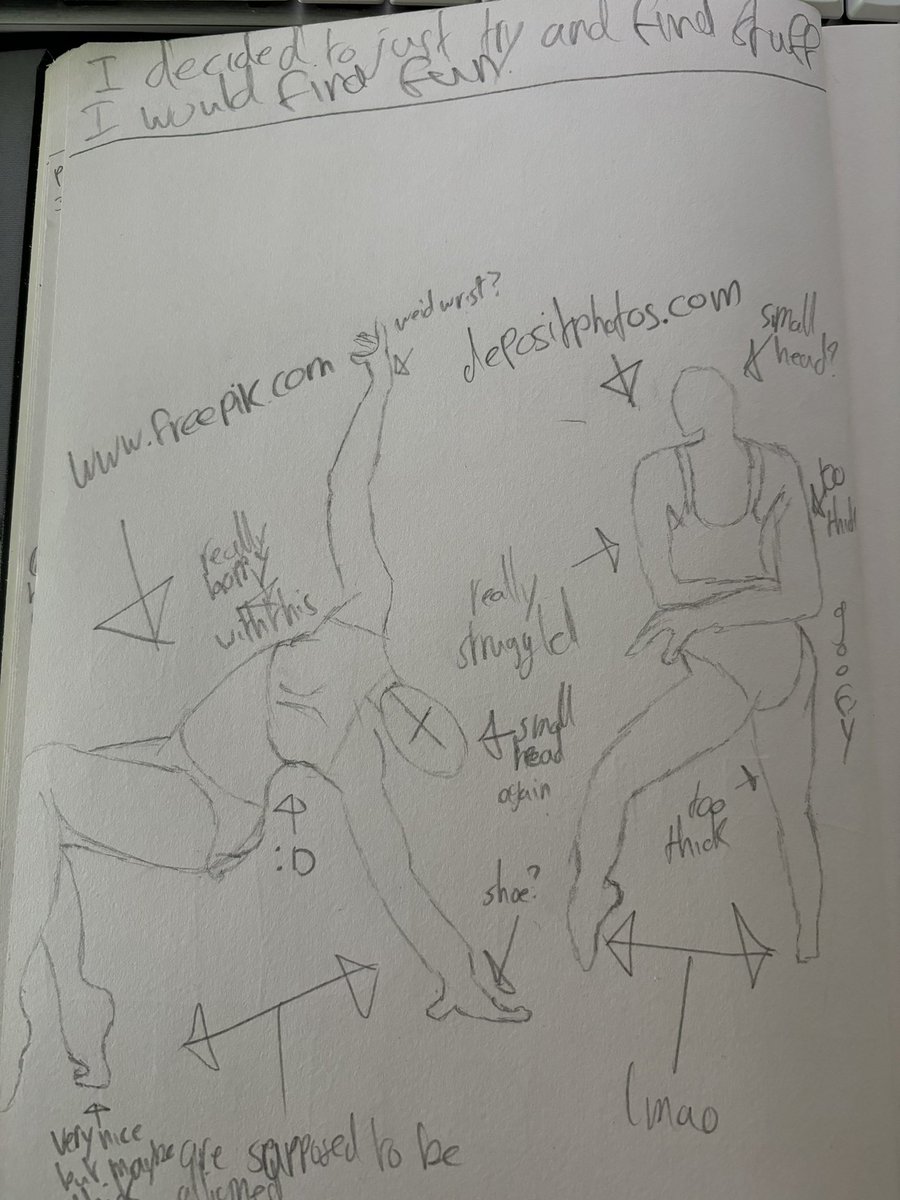 I decided to just try and find stuff
I would find fun.
weid wrist?
www.freepik.com
depositphotos.com
small
head?
too
thick
really
happy
with this
really
struggled
goofy
small
head
again
:D
too
thick
shoe?
lmao
very nice
but maybe
are supposed to be
aligned